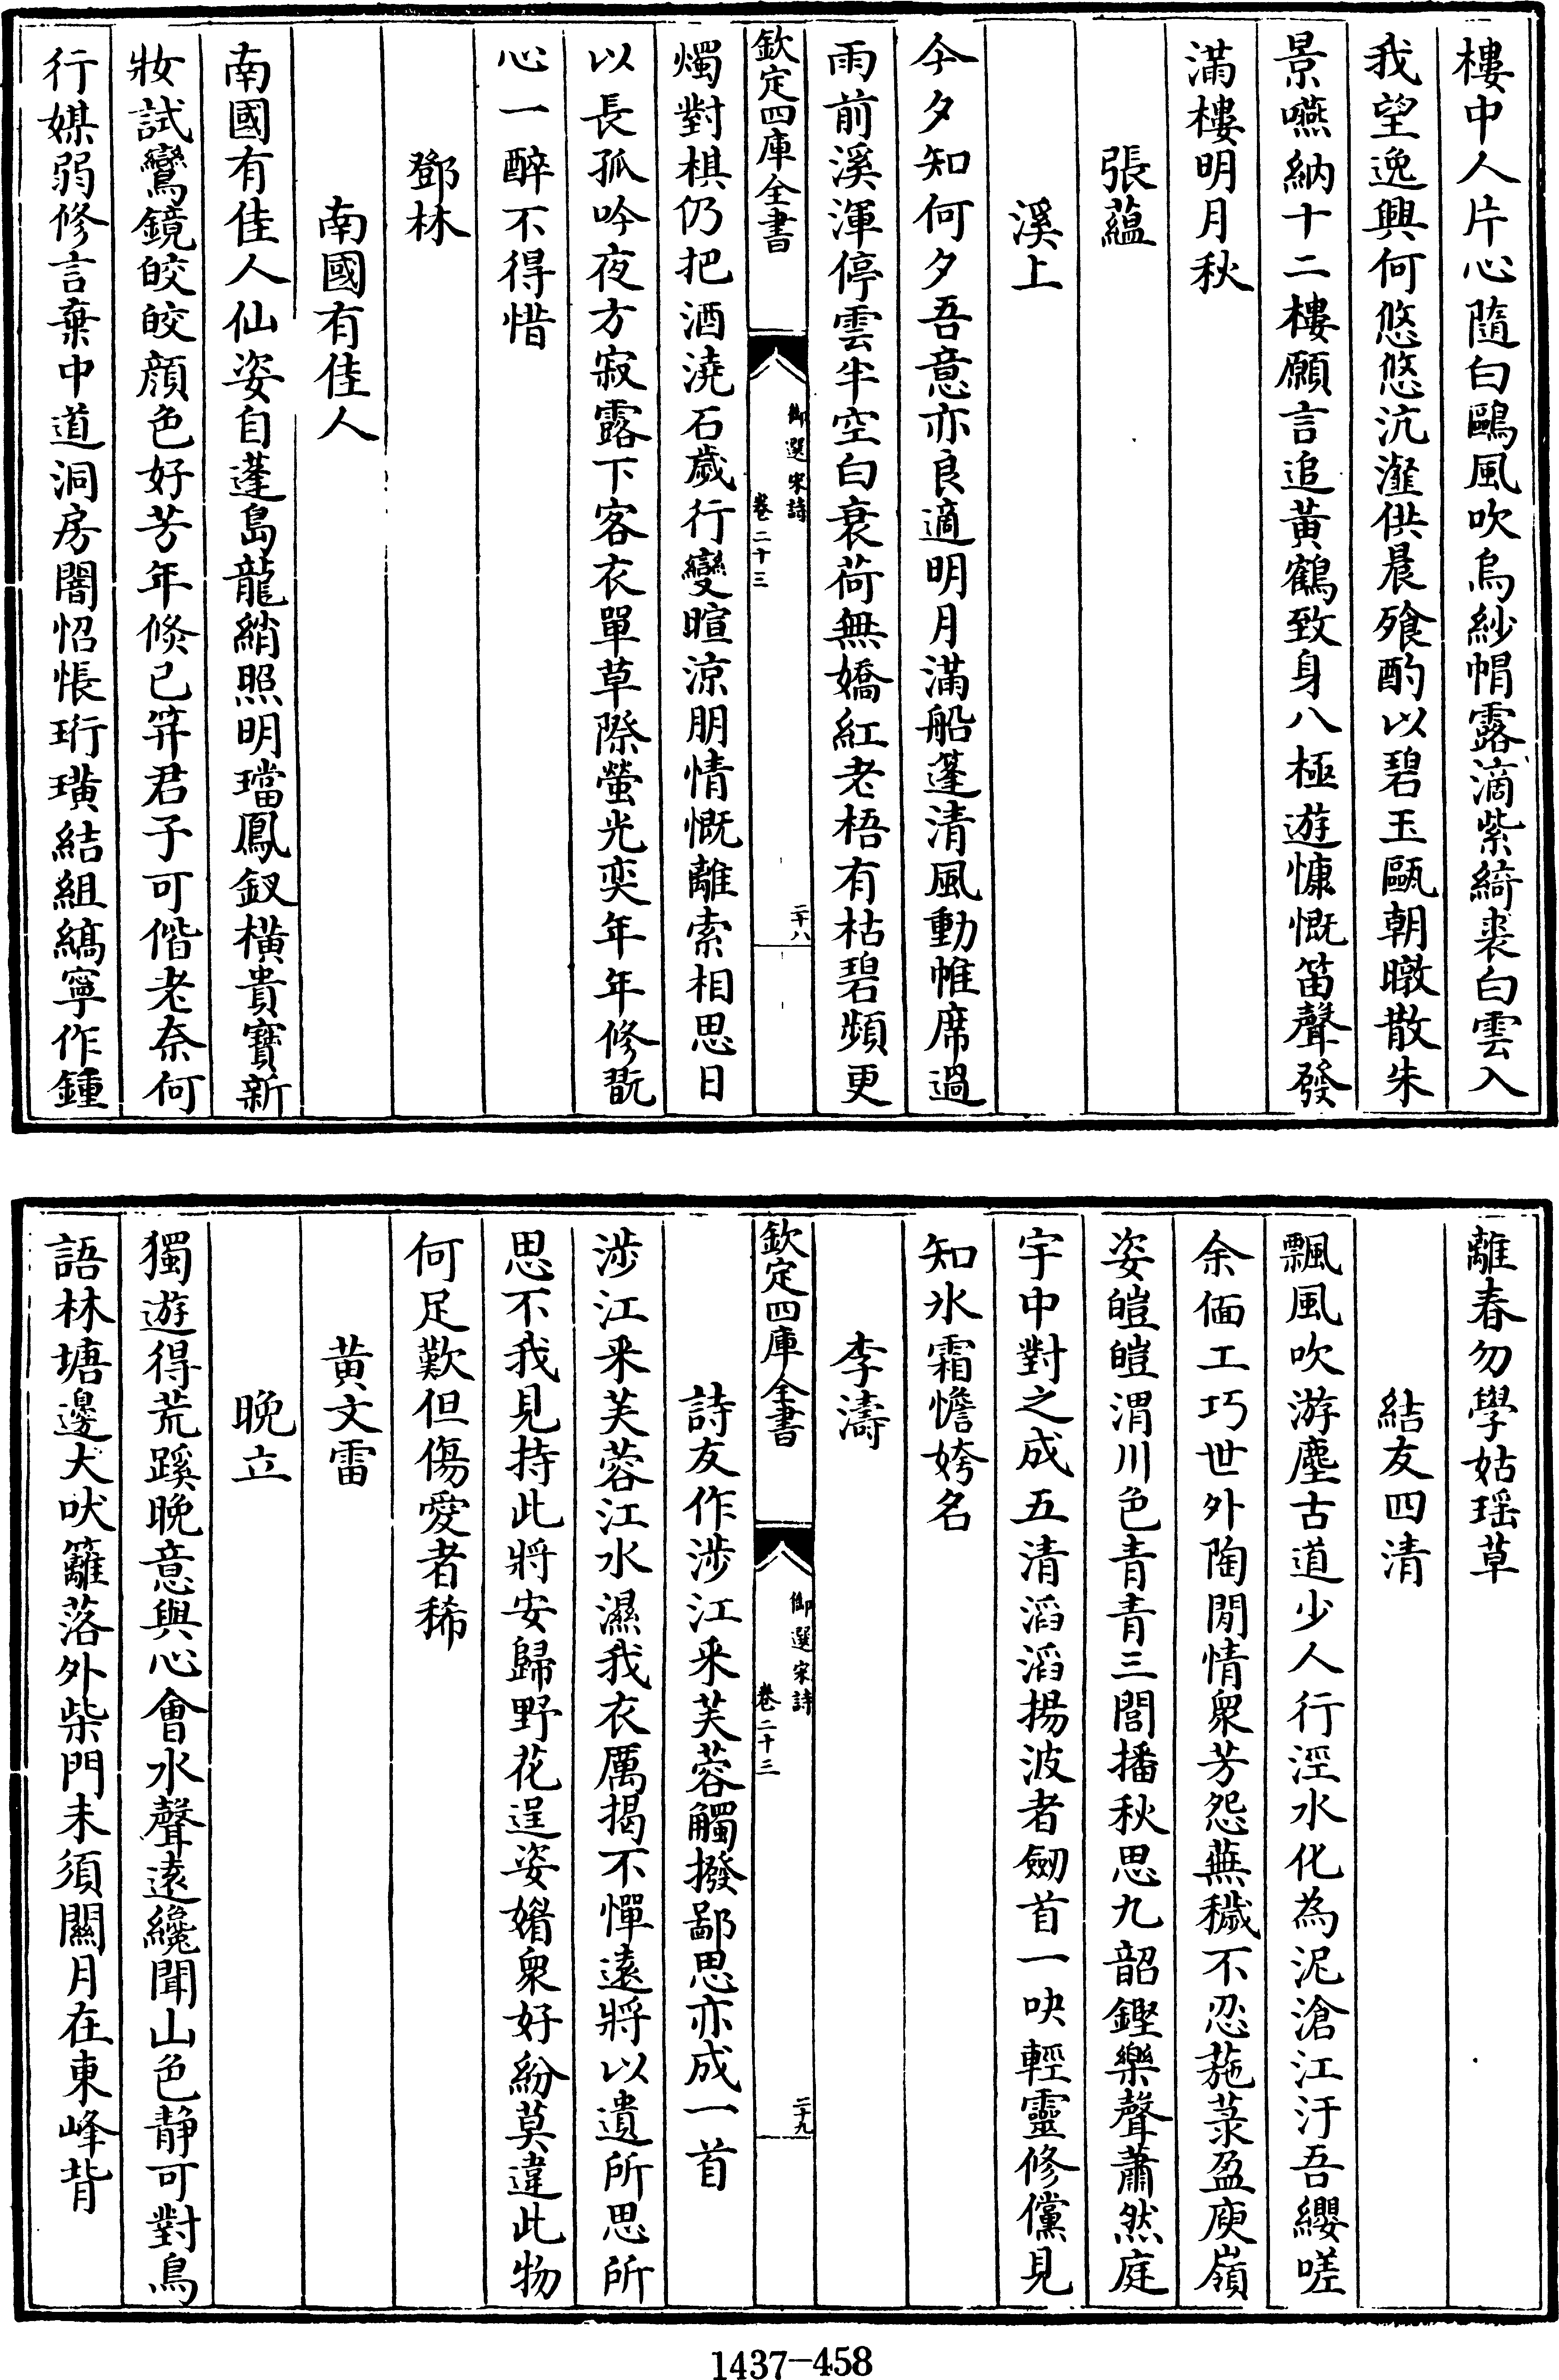 樓中人片心隨白鷗風吹烏紗帽露滴紫綺裘白雲入
我望逸興何悠悠沆瀣供晨飱酌以碧玉甌朝暾散朱
景嚥納十二樓願言追黃鶴致身八極遊慷慨笛聲發
滿樓明月秋
張蘊
溪上
今夕知何夕吾意亦良適明月滿船篷清風動帷席過
雨前溪渾停雲半空白衰荷無嬌紅老梧有枯碧頻更
欽定四庫全書
御選宋詩
卷二十三
二十八
燭對棋仍把酒澆石歲行變暄涼朋情慨離索相思日
以長孤吟夜方寂露下客衣單草際螢光奕年年修翫
心一醉不得惜
鄧林
南國有佳人
南國有佳人仙姿自蓬島龍綃照明璫鳳釵橫貴寶新
妝試鸞鏡皎皎顏色好芳年倏已笄君子可偕老奈何
行媒弱修言棄中道洞房闇怊悵珩璜結組縞寧作鍾
離春勿學姑瑶草
結友四清
飄風吹游塵古道少人行涇水化為泥滄江汙吾纓嗟
余偭工巧世外陶閒情衆芳怨蕪穢不忍葹菉盈庾嶺
姿皚皚渭川色青青三閭播秋思九韶鏗樂聲蕭然庭
宇中對之成五清滔滔揚波者劒首一吷輕靈修儻見
知氷霜憺姱名
李濤
欽定四庫全書
御選宋詩
卷二十三
二十九
詩友作涉江采芙蓉觸撥鄙思亦成一首
涉江采芙蓉江水濕我衣厲揭不憚遠將以遺所思所
思不我見持此將安歸野花逞姿媚衆好紛莫違此物
何足歎但傷愛者稀
黃文雷
晚立
獨遊得荒蹊晚意與心會水聲遠纔聞山色静可對鳥
語林塘邊犬吠籬落外柴門未須關月在東峰背
1437-458